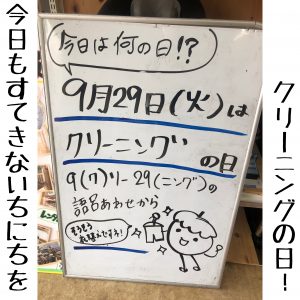 クリーニングの日!
今日は何の日!?
9月29日(火)は
クリーニング の日
9(ク)リー29(ニング)の
語呂あわせから
そろそろ
衣替えですネ!
今日もすてきないちにちを